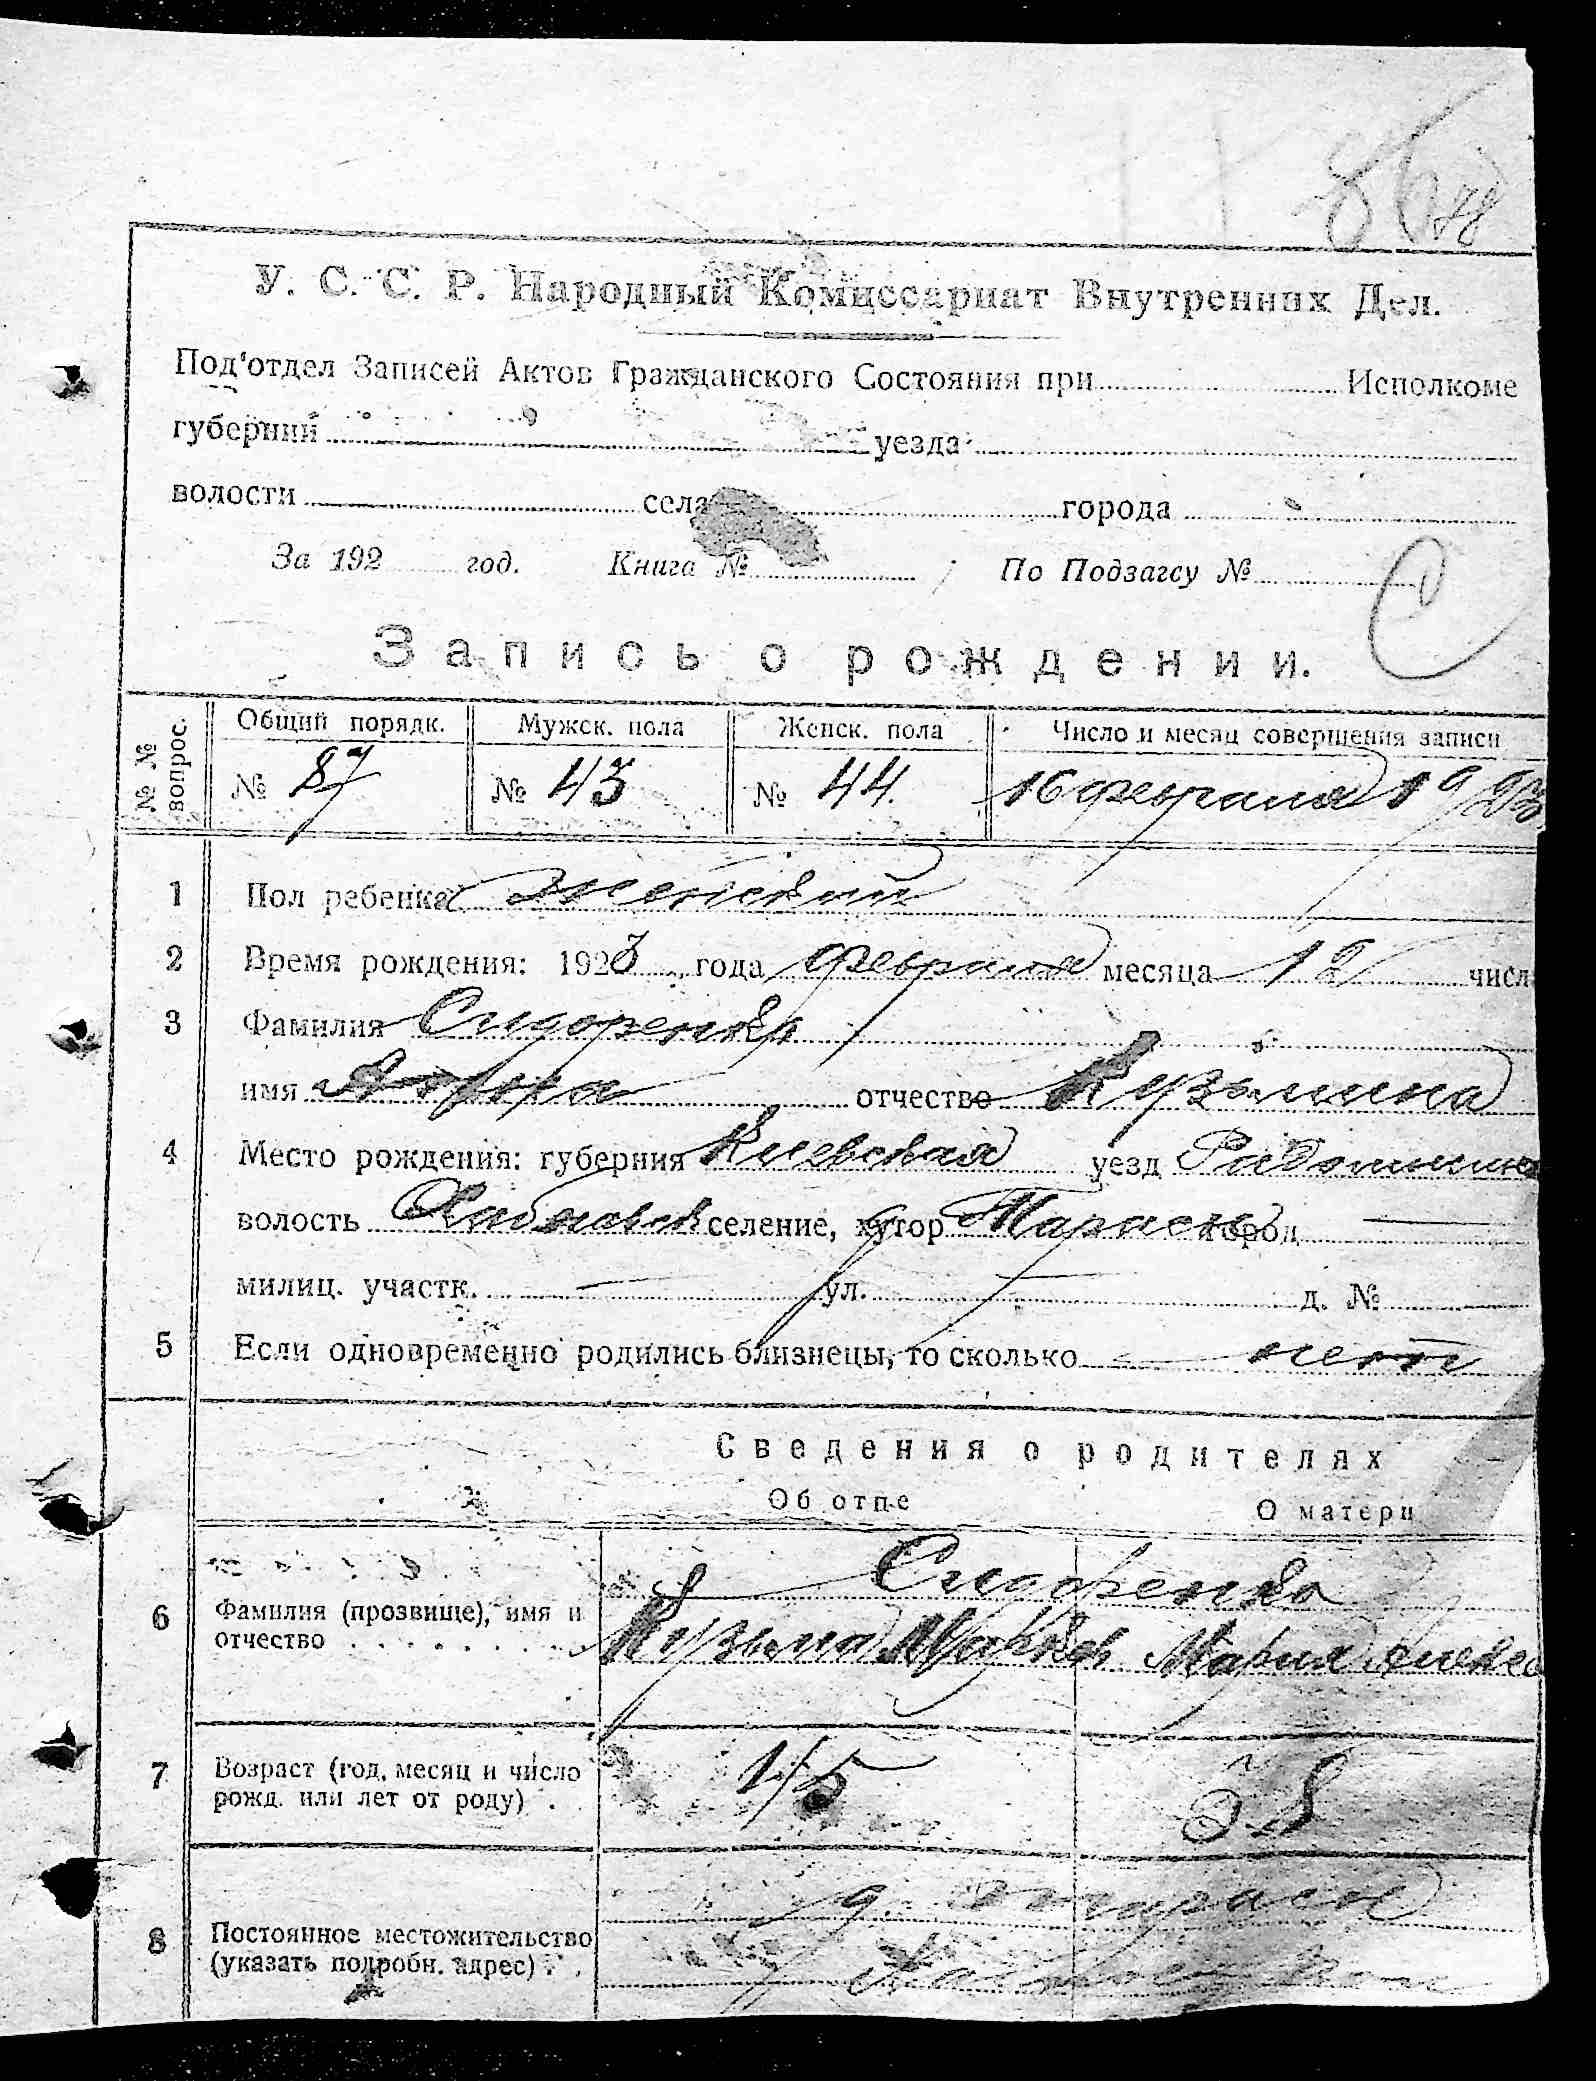 78
У. С. С. Р. Народный Комиссариат Внутренних Дел.
Под'отдел Записей Актов Гражданского Состояния при Исполкоме
губернии уезда
волости села города
За 192 год. Книга № По Подзагсу №
С
Запись о рождении.
№ № вопрос. Общий порядк. Мужск. пола Женск. пола Число и месяц совершения записи
№ 87 № 43 № 44. 16 февраля 1923
1 Пол ребенка женский
2 Время рождения: 1923 года февраля месяца 12 числ
3 Фамилия Сидоренко
имя отчество Кузьмина
4 Место рождения: губерния Киевская уезд
волость селение, хутор город —
милиц. участк. — ул. — д. № —
5 Если одновременно родились близнецы, то сколько нет
Сведения о родителях
Об отце О матери
Сидоренко
6 Фамилия (прозвище), имя и
отчество Кузьма Марков Мария
7 Возраст (год, месяц и число
рожд. или лет от роду) 45 38
8 Постоянное местожительство
(указать подробн. адрес)